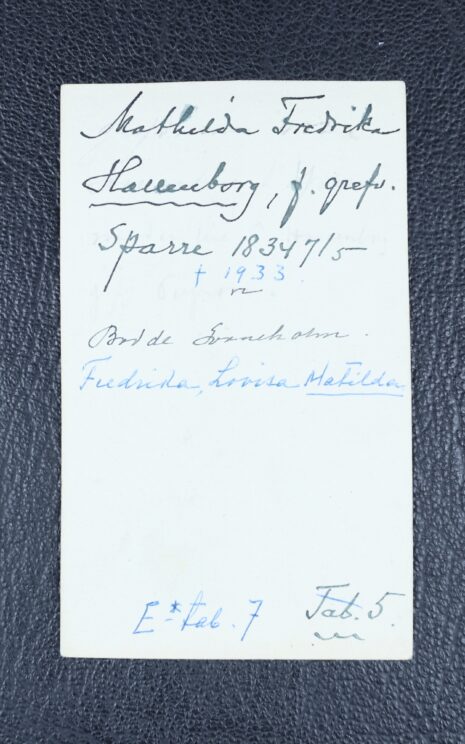 Mathilda Fredrika
Hallenborg, f. grefv.
Sparre 1834 7/5
† 1933
Bodde Svaneholm.
Fredrika, Lovisa Matilda
E* tab. 7 Tab. 5.